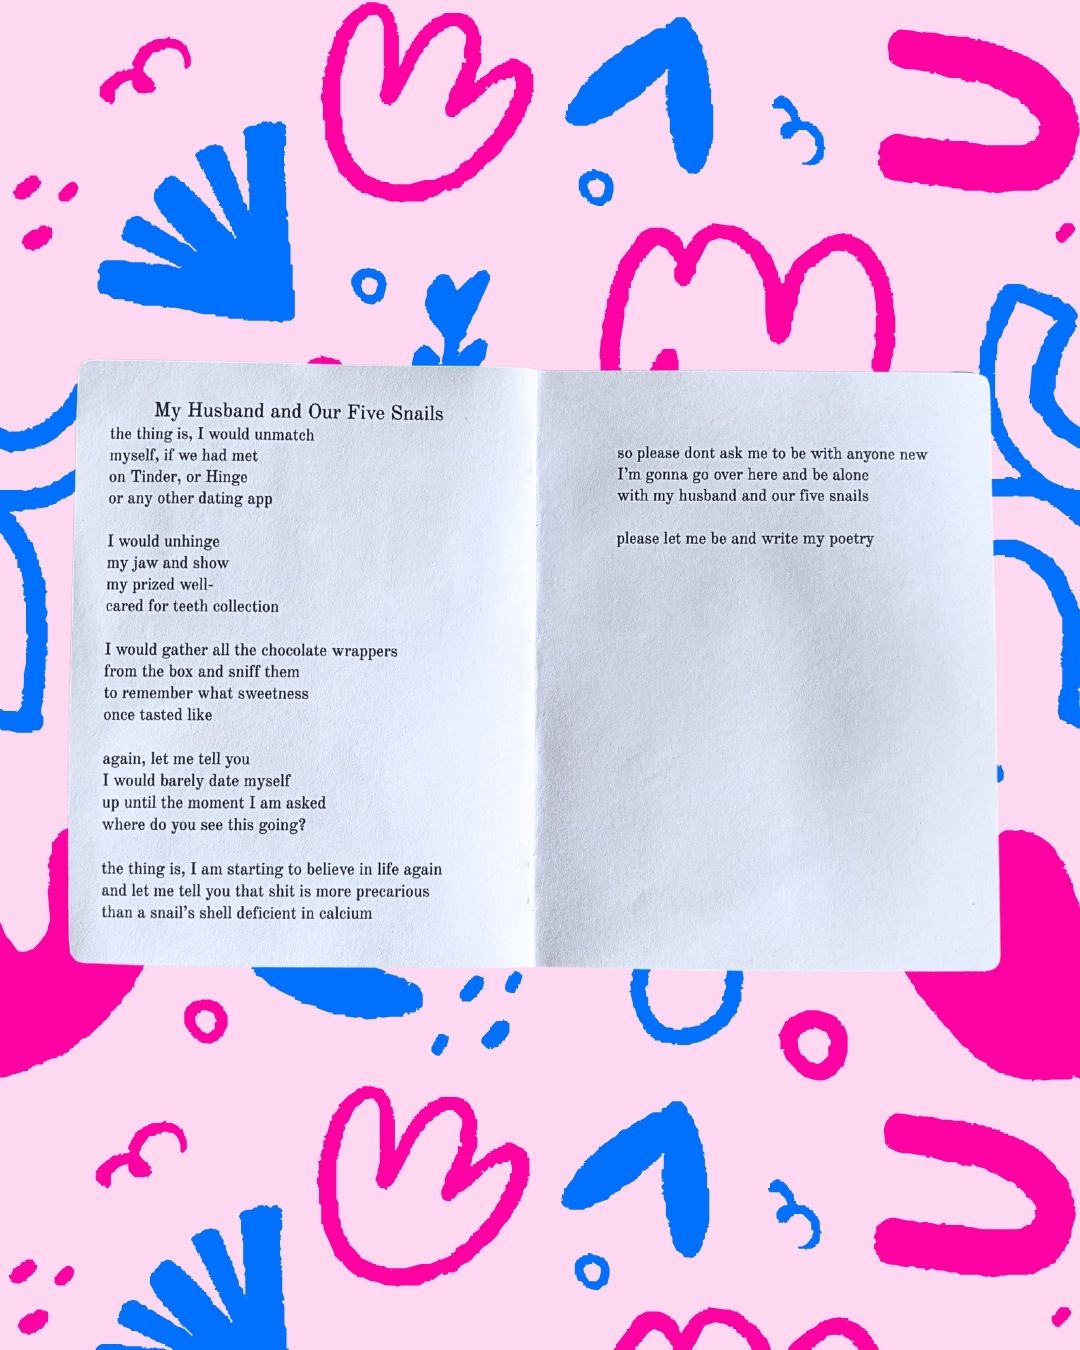 My Husband and Our Five Snails
the thing is, I would unmatch
myself, if we had met
on Tinder, or Hinge
or any other dating app
I would unhinge
my jaw and show
my prized well-
cared for teeth collection
I would gather all the chocolate wrappers
from the box and sniff them
to remember what sweetness
once tasted like
again, let me tell you
I would barely date myself
up until the moment I am asked
where do you see this going?
the thing is, I am starting to believe in life again
and let me tell you that shit is more precarious
than a snail's shell deficient in calcium
so please dont ask me to be with anyone new
I'm gonna go over here and be alone
with my husband and our five snails
please let me be and write my poetry